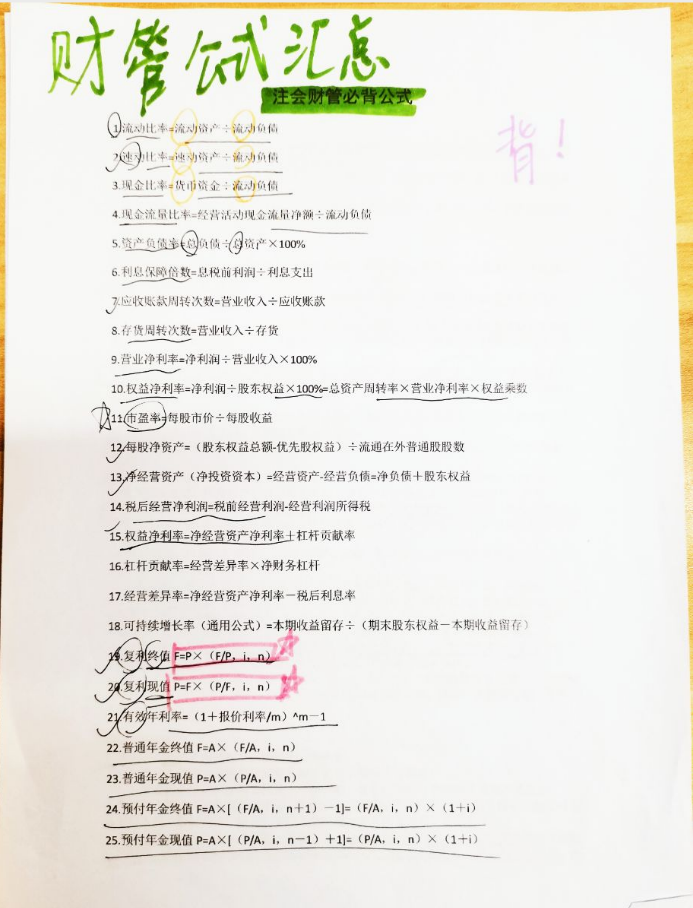 财管公式汇总
注会财管必背公式
背!
1.流动比率=流动资产÷流动负债
2.速动比率=速动资产÷流动负债
3.现金比率=货币资金÷流动负债
4.现金流量比率=经营活动现金流量净额÷流动负债
5.资产负债率=总负债÷总资产×100%
6.利息保障倍数=息税前利润÷利息支出
7.应收账款周转次数=营业收入÷应收账款
8.存货周转次数=营业收入÷存货
9.营业净利率=净利润÷营业收入×100%
10.权益净利率=净利润÷股东权益×100%=总资产周转率×营业净利率×权益乘数
11.市盈率=每股市价÷每股收益
12.每股净资产=（股东权益总额-优先股权益）÷流通在外普通股股数
13.净经营资产（净投资资本）=经营资产-经营负债=净负债＋股东权益
14.税后经营净利润=税前经营利润-经营利润所得税
15.权益净利率=净经营资产净利率＋杠杆贡献率
16.杠杆贡献率=经营差异率×净财务杠杆
17.经营差异率=净经营资产净利率－税后利息率
18.可持续增长率（通用公式）=本期收益留存÷（期末股东权益－本期收益留存）
19.复利终值 F=P×（F/P，i，n）
20.复利现值 P=F×（P/F，i，n）
21.有效年利率=（1＋报价利率/m）^m－1
22.普通年金终值 F=A×（F/A，i，n）
23.普通年金现值 P=A×（P/A，i，n）
24.预付年金终值 F=A×[（F/A，i，n＋1）－1]=（F/A，i，n）×（1＋i）
25.预付年金现值 P=A×[（P/A，i，n－1）＋1]=（P/A，i，n）×（1＋i）